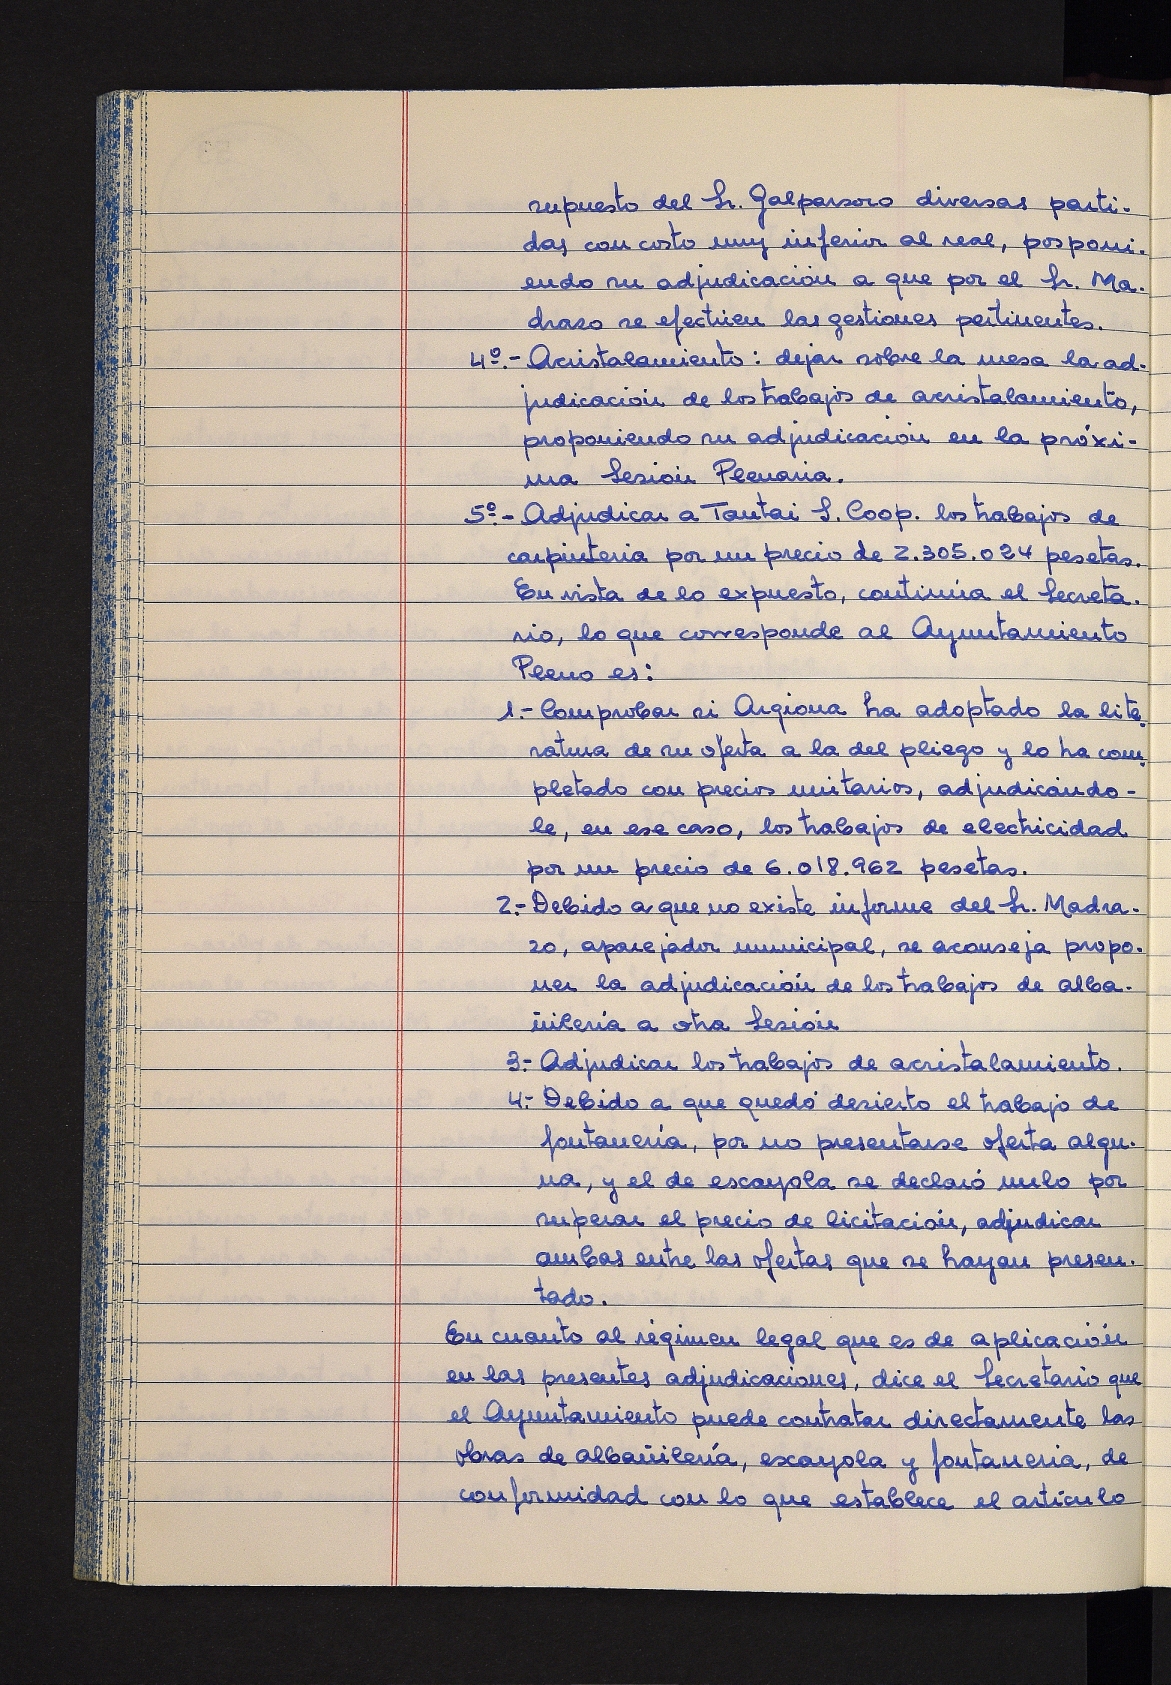 supuesto del Sr. Galparsoro diversas parti-
das con costo muy inferior al real, posponi-
endo su adjudicación a que por el Sr. Ma-
drazo se efectúen las gestiones pertinentes.
4º.- Acristalamiento: dejar sobre la mesa la ad-
judicación de los trabajos de acristalamiento,
proponiendo su adjudicación en la próxi-
ma Sesión Plenaria.
5º.- Adjudicar a Tantai S. Coop. los trabajos de
carpinteria por un precio de 2.305.024 pesetas.
En vista de lo expuesto, continúa el Secreta-
rio, lo que corresponde al Ayuntamiento
Pleno es:
1.- Comprobar si Argiona ha adoptado la lite-
ratura de su oferta a la del pliego y lo ha com-
pletado con precios unitarios, adjudicándo-
le, en ese caso, los trabajos de electricidad
por un precio de 6.018.962 pesetas.
2.- Debido a que no existe informe del Sr. Madra-
zo, aparejador municipal, se aconseja propo-
ner la adjudicación de los trabajos de alba-
ñilería a otra Sesión
3.- Adjudicar los trabajos de acristalamiento.
4.- Debido a que quedó desierto el trabajo de
fontanería, por no presentarse oferta algu-
na, y el de escayola se declaró nulo por
superar el precio de licitación, adjudicar
ambas entre las ofertas que se hayan presen-
tado.
En cuanto al régimen legal que es de aplicación
en las presentes adjudicaciones, dice el Secretario que
el Ayuntamiento puede contratar directamente las
obras de albañilería, escayola y fontaneria, de
conformidad con lo que establece el artículo